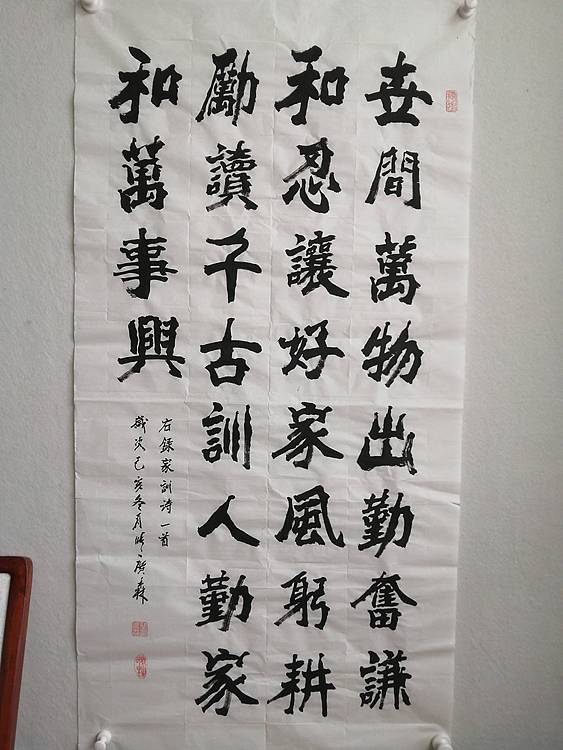 世間萬物出勤奮謙
和忍讓好家風躬耕
勵讀千古訓人勤家
和萬事興
右錄家訓詩一首
歲次己亥冬月 廣森